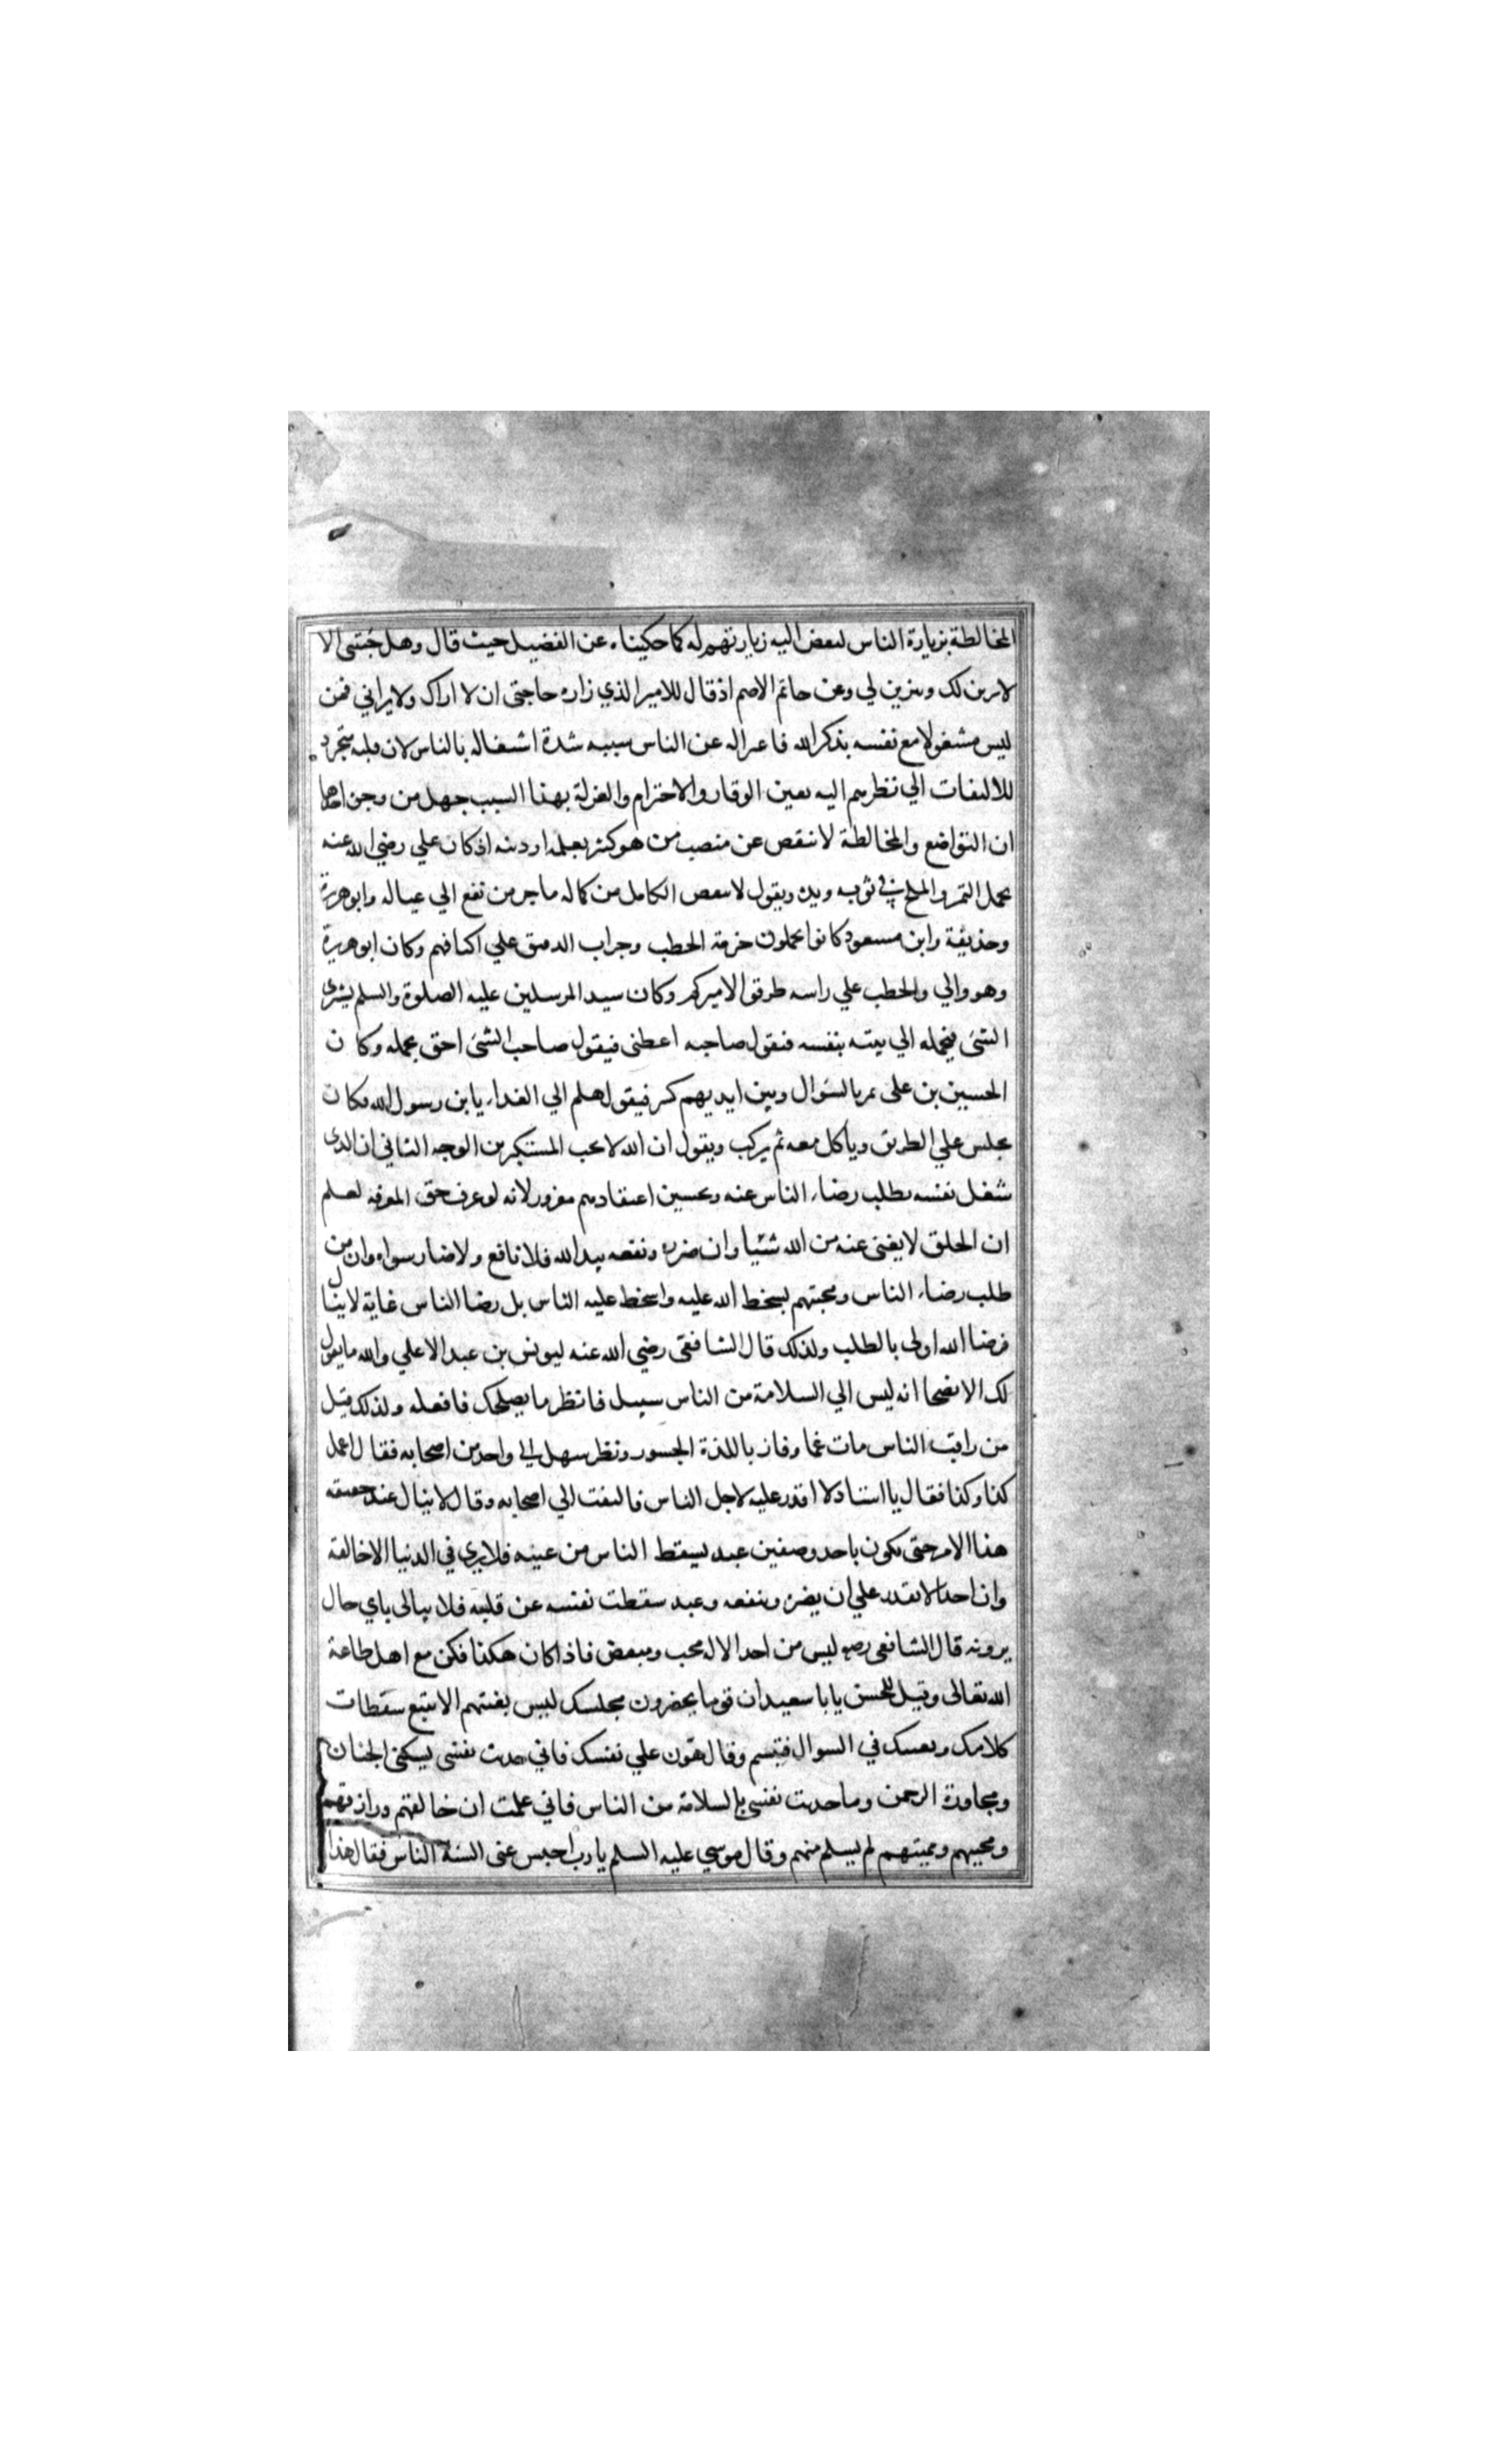 المخالطة بزيارة الناس لبعض اليه زيارتهم له كما حكيناه عن الفضيل حيث قال وهل جئتنى الا
لاتزين لك وتتزين لي وعن حاتم الاصم اذ قال للامير الذي زاره حاجتى ان لا اراك ولا يراني فمن
ليس مشغولا مع نفسه بذكر الله فاعتزاله عن الناس سببه شدة اشتغاله بالناس لان قلبه متجرد
للالتفات الي نظرهم اليه بعين الوقار والاحترام والعزلة بهذا السبب جهل من وجن احدها
ان التواضع والمخالطة لا تنقص عن منصب من هو كثر بعلمه او دينه اذ كان علي رضي الله عنه
يحمل التمر والملح في ثوبه ويده ويقول لا ينقص الكامل من كماله ما جر من نفع الي عياله وابو هريرة
وحذيفة وابن مسعود كانوا يحملون حزمة الحطب وجراب الدقيق علي اكتافهم وكان ابو هريرة
وهو والي والحطب علي راسه طرقوا الاميركم وكان سيد المرسلين عليه الصلوة والسلم يشترى
الشئ فيحمله الي بيته بنفسه فيقول صاحبه اعطنى فيقول صاحب الشئ احق بحمله وكان
الحسين بن على يمر بالسؤال وبين ايديهم كسر فيقول هلم الي الغداء يا بن رسول الله فكان
يجلس علي الطريق وياكل معه ثم يركب ويقول ان الله لا يحب المستكبرين الوجه الثاني ان الذى
شغل نفسه بطلب رضاء الناس عنه وتحسين اعتقادهم مغرور لانه لو عرف حق المعرفة لعلم
ان الخلق لا يغنى عنه من الله شيئا وان ضره ونفعه بيد الله فلا نافع ولا ضار سواه وان من
طلب رضاء الناس ومحبتهم بسخط الله عليه واسخط عليه الناس بل رضا الناس غاية لا ينال
فرضا الله اولى بالطلب ولذلك قال الشافعى رضي الله عنه ليونس بن عبد الاعلي والله ما يقول
لك الا نصحا انه ليس الي السلامة من الناس سبيل فانظر ما يصلحك فافعله ولذلك قيل
من راقب الناس مات غما وفاز باللذة الجسور ونظر سهل الي واحد من اصحابه فقال اعمل
كذا وكذا فقال يا استاد لا اقدر عليه لاجل الناس فالتفت الي اصحابه وقال لا ينال عند حقيقه
هذا الامر حتى يكون باحد وصفين عبد يسقط الناس من عينه فلا يري في الدنيا الا خالقه
وان احدا لا يقدر علي ان يضره وينفعه وعبد سقطت نفسه عن قلبه فلا يبالى باي حال
يرونه قال الشافعى رضه ليس من احد الا له محب ومبغض فاذا كان هكذا فكن مع اهل طاعة
الله تعالى وقيل للحسن يا با سعيد ان قوما يحضرون مجلسك ليس بغيتهم الا تتبع سقطات
كلامك وتعنتك في السوال فتبسم وقال هون علي نفسك فاني حدثت نفسى بسكنى الجنان
ومجاورة الرحمن وما حدثت نفسي بالسلامة من الناس فاني علمت ان خالقهم ورازقهم
ومحييهم ومميتهم لم يسلم منهم وقال موسي عليه السلم يا رب احبس عنى السنة الناس فقال هذا